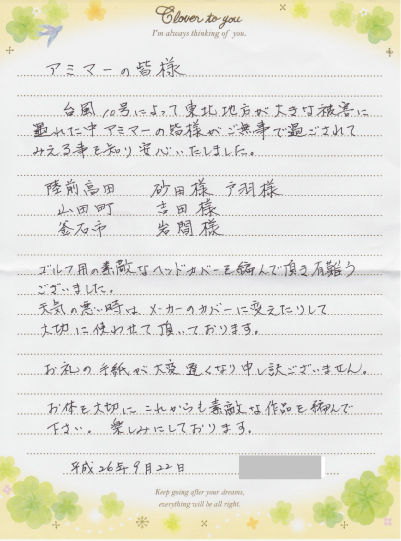 Clover to you
I'm always thinking of you.
アミマーの皆様
台風10号によって東北地方が大きな被害に
遭れた中アミマーの皆様がご無事で過ごされて
みえる事を知り安心いたしました。
陸前高田 砂田様 戸羽様
山田町 吉田様
釜石市 岩間様
ゴルフ用の素敵なヘッドカバーを編んで頂き有難う
ございました。
天気の悪い時は メーカーのカバーに変えたりして
大切に使わせて頂いております。
お礼の手紙が大変遅くなり申し訳ございません。
お体を大切に これからも素敵な作品を編んで
下さい。 楽しみにしております。
平成26年9月22日
Keep going after your dreams,
everything will be all right.